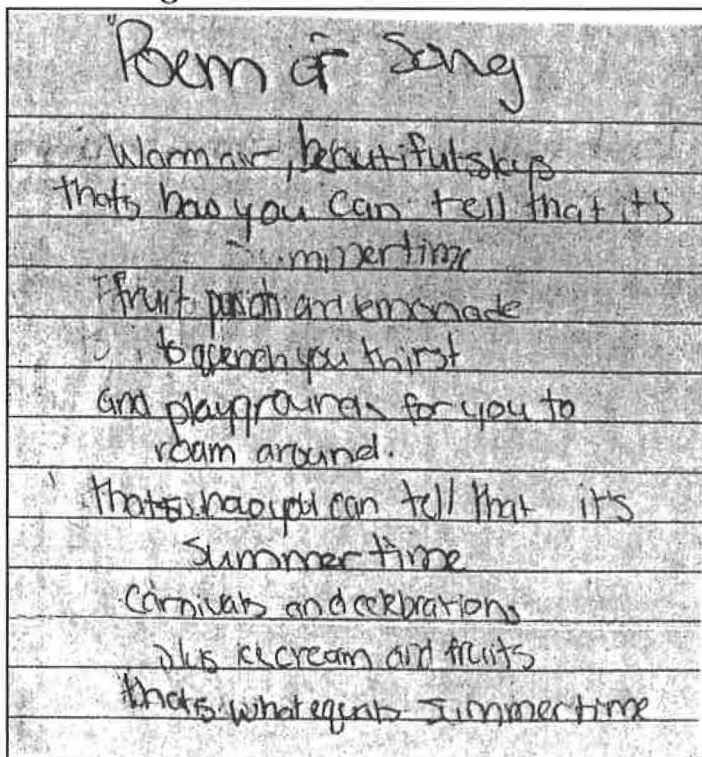 "Poem or Song
Warm air, beautiful skys
thats how you can tell that it's
summertime
fruit punch and lemonade
to quench you thirst
and playgrounds for you to
roam around.
thats how you can tell that it's
Summertime
carnivals and celebrations
plus icecream and fruits
thats what equals summertime